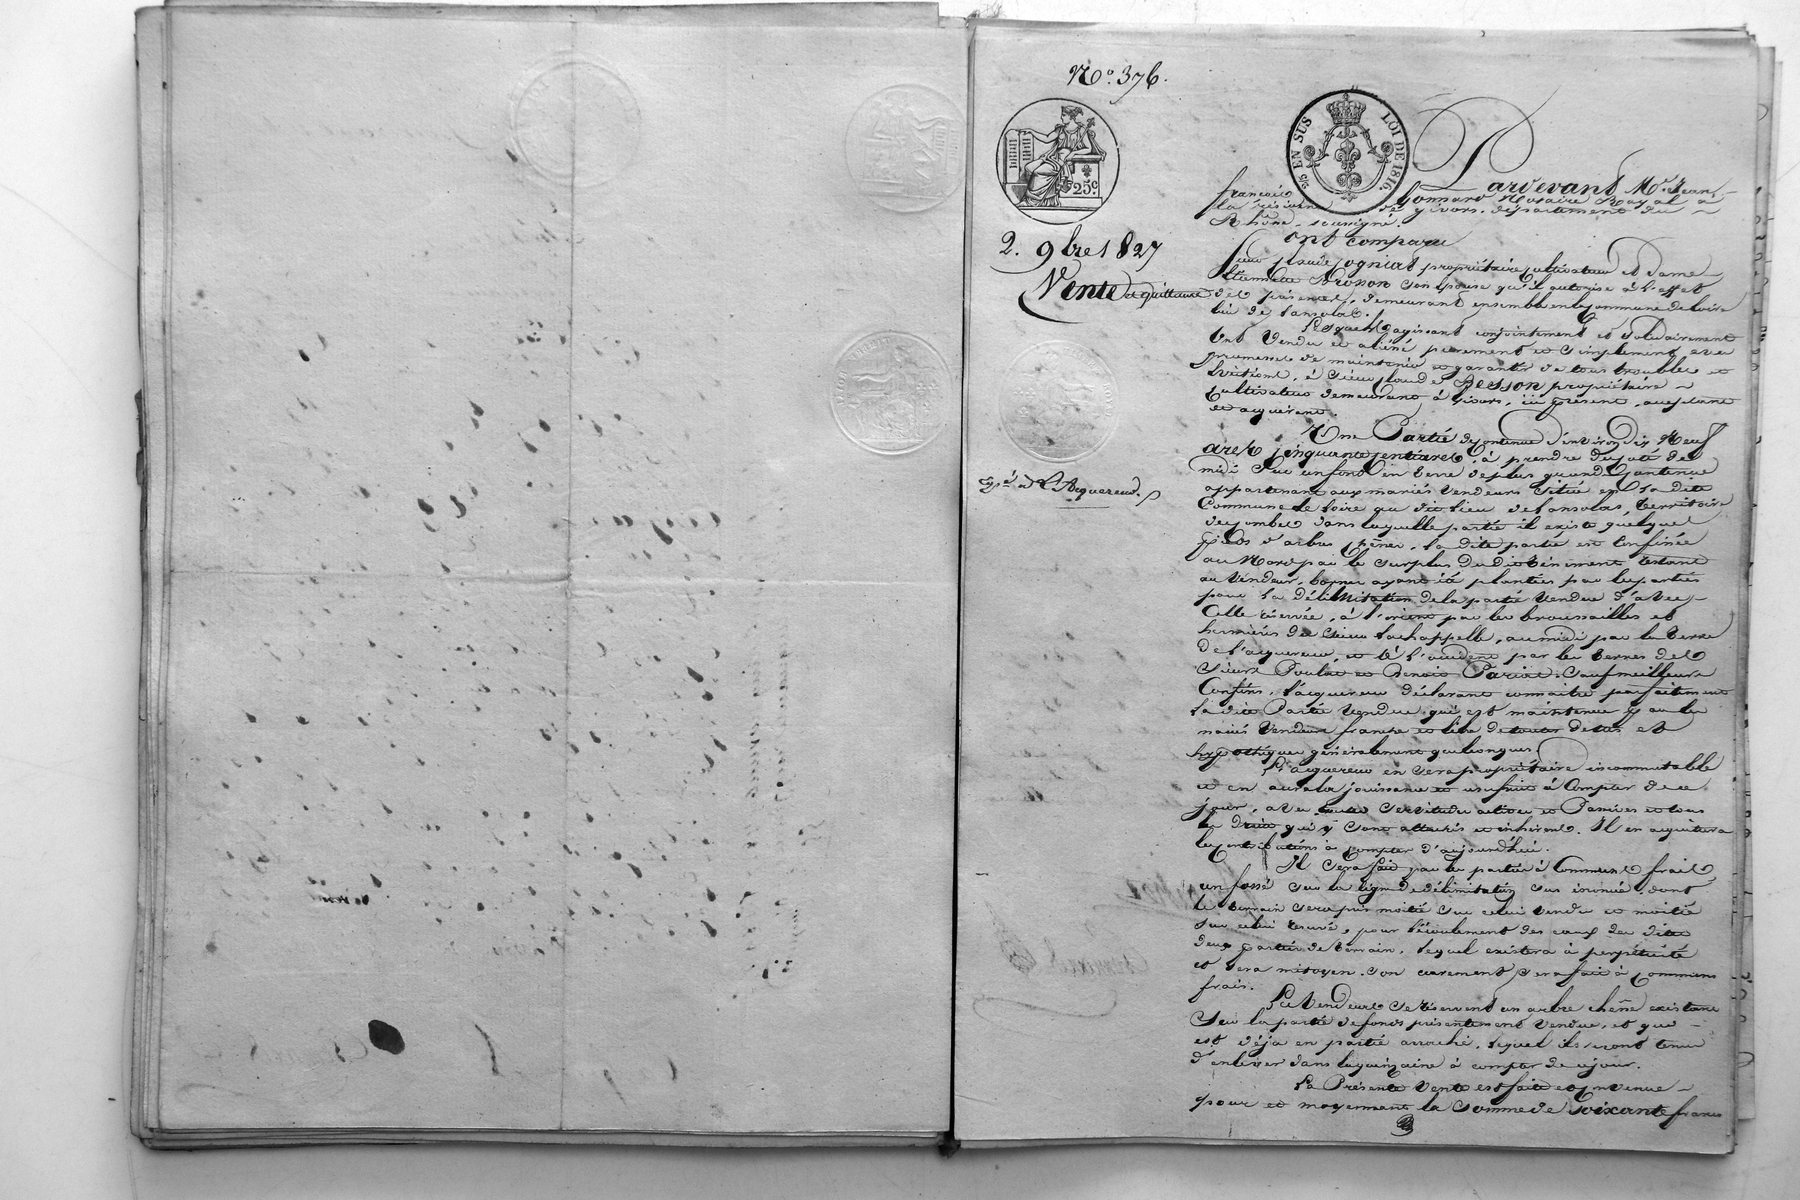 N.° 376.
25.c
⅖ EN SUS LOI DE 1816.
2. 9bre 1827
Vente et quittance
Expé. à l'Acquereur.
Pardevant Me. Jean
françois Bonnard Notaire Royal à
la résidence de givors, département du
Rhône, soussigné.
ont comparu
Sieur Jogniat propriétaire cultivateur et Dame
Brosson son épouse qu'il autorise à l'effet
des présentes, demeurant ensemble en la commune de loire
lieu de Lansolas.
Lesquels agissant conjointement et solidairement
ont vendu et aliéné purement et simplement avec
promesse de maintenir et garantir de tous troubles et
évictions, à sieur Claude Besson propriétaire
cultivateur demeurant à givors, ici présent, acceptant
et acquérant.
Une Partie de contenue d'environ dix Neuf
ares cinquante centiares, à prendre du côté de
midi sur un fond en terre de plus grande contenue
appartenant aux mariés vendeurs située en la dite
Commune de loire au dit lieu de Lansolas, territoire
de combe dans laquelle partie il existe quelques
pieds d'arbres chênes. la dite partie est confinée
au Nord par le surplus du dit tènement restant
au vendeur, bornes ayant été plantées par les parties
pour la délimitation de la partie vendue d'avec
Celle réservée, à l'orient par les broussailles et
hermières du sieur Lachappelle, au midi par la terre
de l'acquereur, et à l'occident par les terres des
Sieurs Poulat et Benoit Pariot. Sauf meilleurs
Confins, l'acquereur déclarant connaitre parfaitement
la dite Partie vendue qui est maintenue par les
mariés Vendeurs franche et libre de toutes dettes et
hypothèques généralement quelconques.
L'acquereur en sera propriétaire incommutable
et en aura la jouissance et usufruit à Compter de ce
jour, avec toutes servitudes actives et Passives et tous
les droits qui y sont attachés et inhérens. Il en acquittera
les contributions à compter d'aujourd'hui.
Il sera fait par les parties à Communs frais
un fossé sur la ligne de délimitation sus énoncée, dont
le terrain sera pris moitié sur celui vendu et moitié
sur celui réservé, pour l'écoulement des eaux des dites
deux parties de terrain, lequel existera à perpétuité
et sera mitoyen. son curement sera fait à communs
frais.
Les Vendeurs se réservent un arbre chêne existant
sur la partie de fonds présentement vendue, et qui
est déja en partie arraché, lequel ils seront tenus
d'enlever dans la quinzaine à compter de ce jour.
La Présente vente est faite et convenue
pour et moyennant la somme de Soixante francs